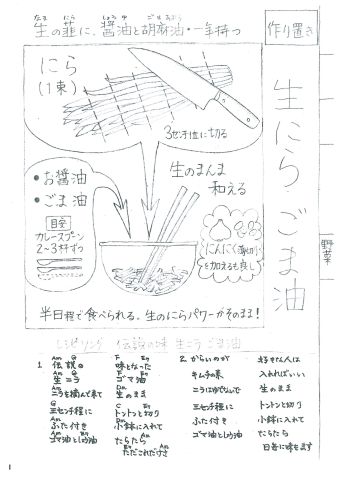 生の韮に、醤油と胡麻油・一年持つ
作り置き
生にらごま油
野菜
にら
(1束)
3センチ位に切る
生のまんま
和える
・お醤油
・ごま油
目安
カレースプーン
2〜3杯ずつ
にんにく薄切り
を加えるも良し
半日程で食べられる。生のにらパワーがそのまま!
レシピソング 伝説の味 生ニラごま油
1. 伝説の 味となった
生ニラ ゴマ油
ニラを摘んで来て 生のまま
三センチ程に トントンと切り
ふた付き 小鉢に入れて
ゴマ油としょう油 たらたら
ただこれだけさ
2. からいのが 好きな人は
キムチの素 入れればいい
ニラはゆでないで 生のまま
三センチ程に トントンと切り
ふた付き 小鉢に入れて
ゴマ油としょう油 たらたら